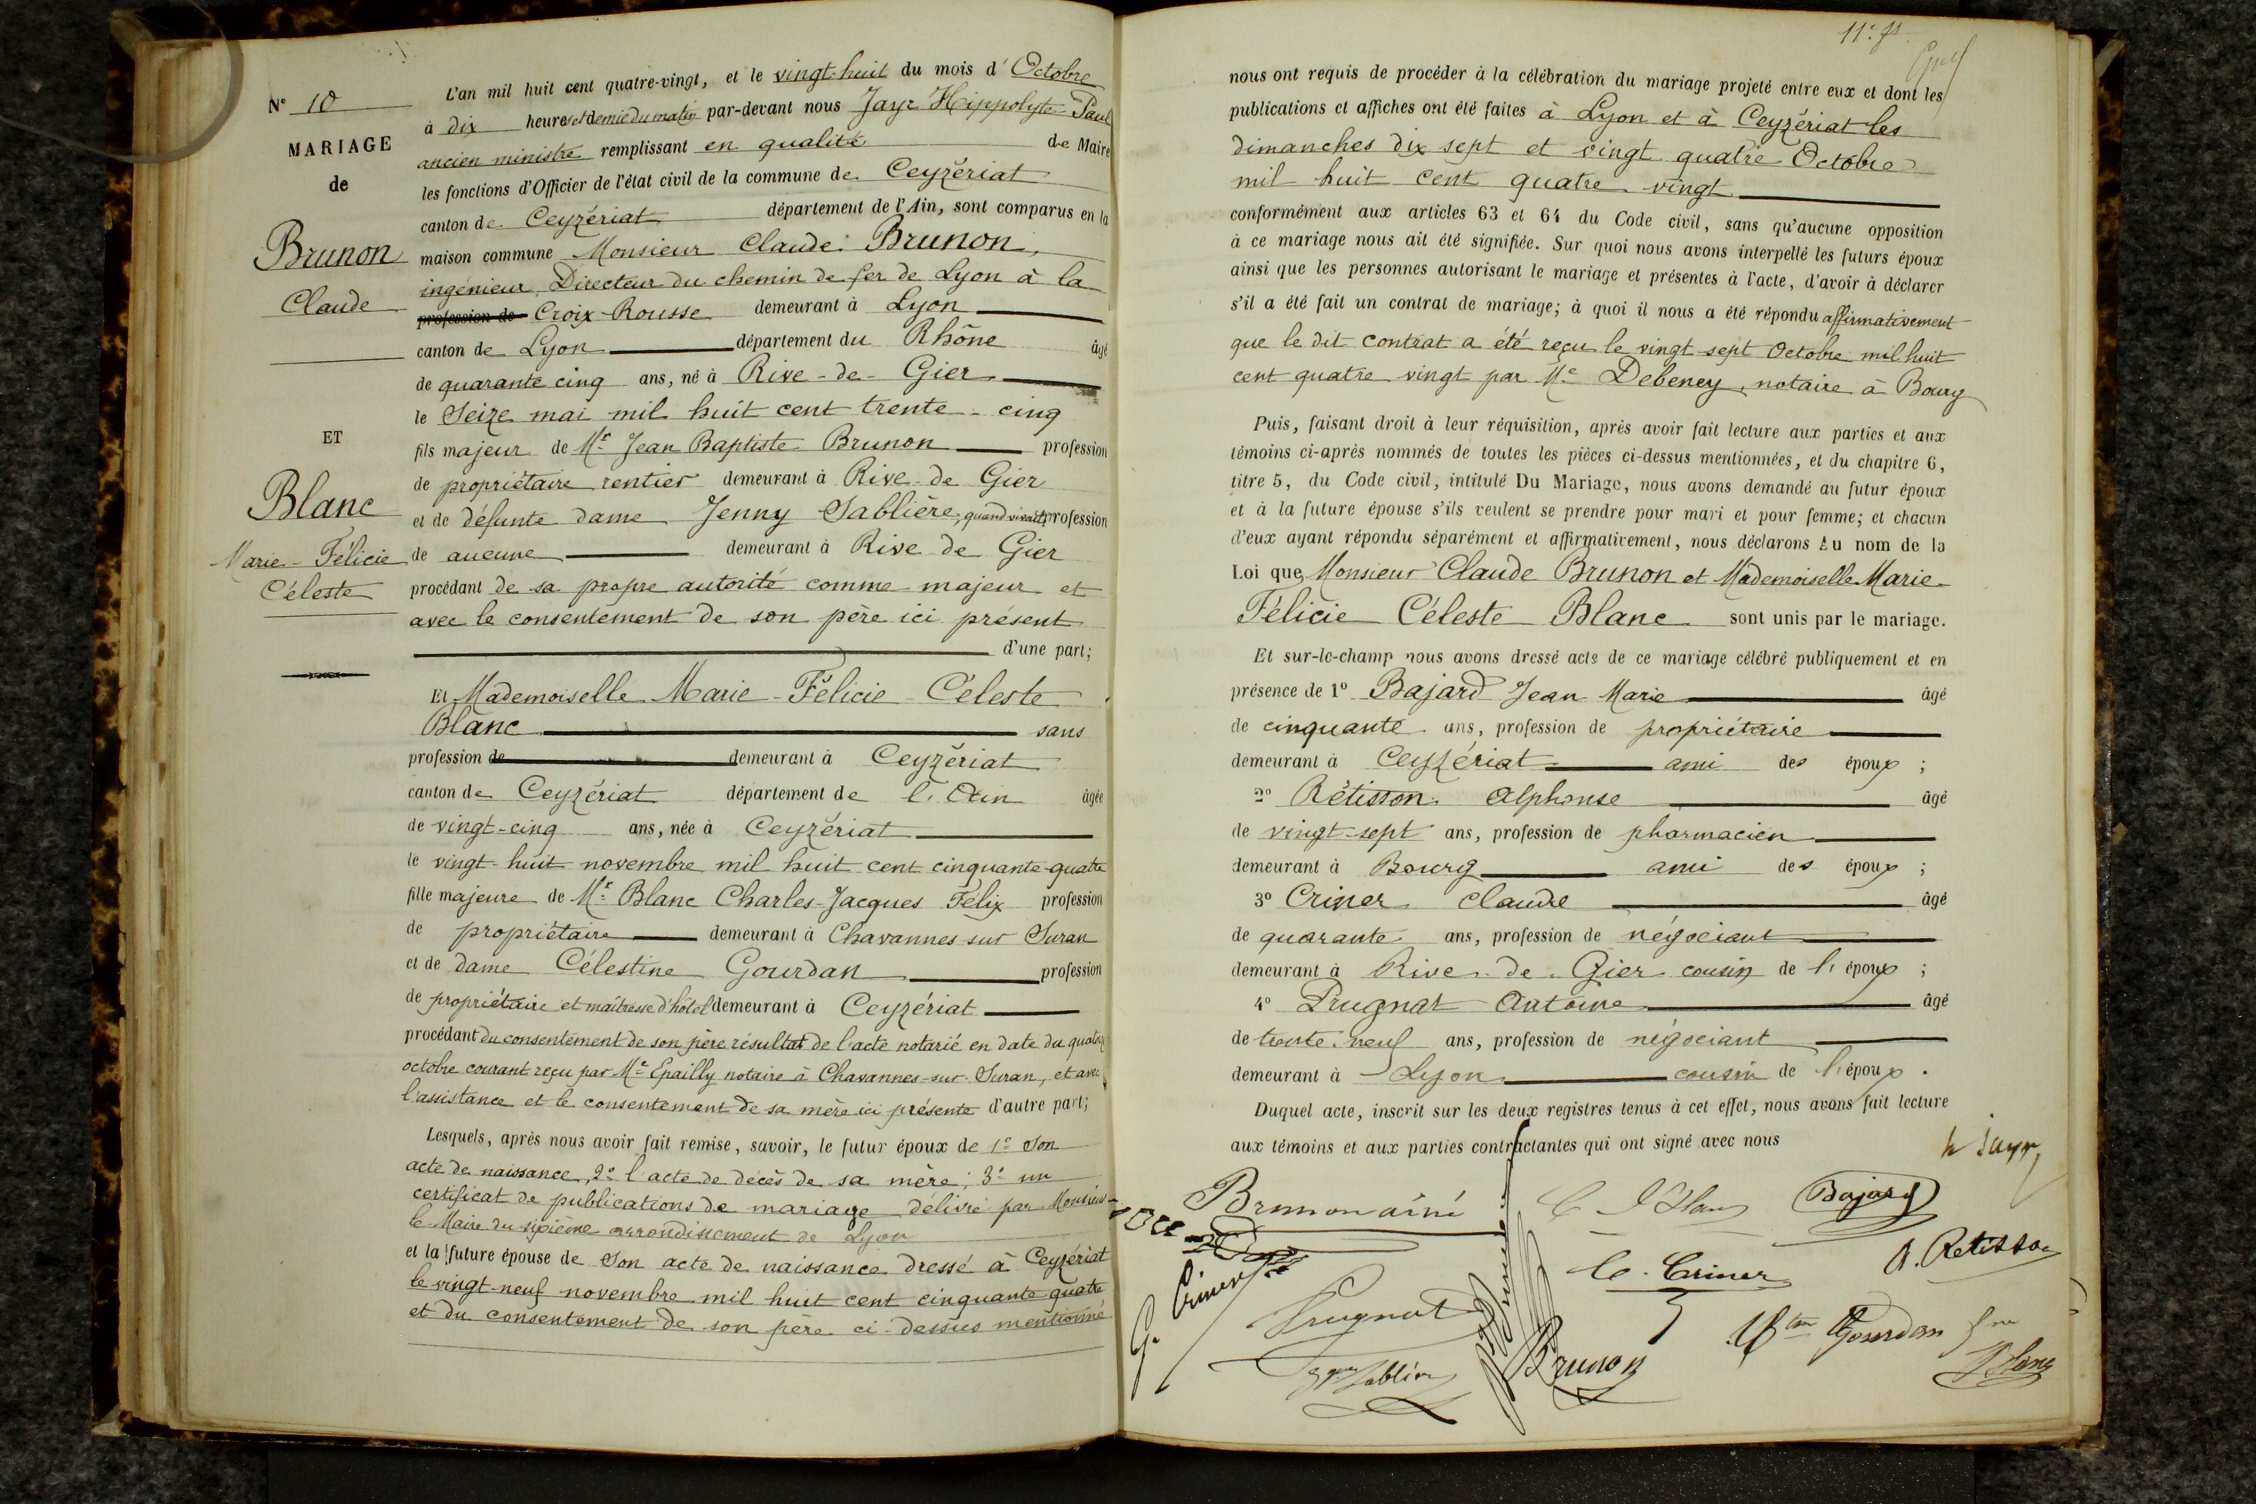 N° 10
MARIAGE
de
Brunon
Claude
ET
Blanc
Marie-Félicie
Céleste
L'an mil huit cent quatre-vingt, et le vingt-huit du mois d'Octobre
à dix heures et demie du matin par-devant nous Jayr Hippolyte Paul
ancien ministre remplissant en qualité de Maire
les fonctions d'Officier de l'état civil de la commune de Ceyzériat
canton de Ceyzériat département de l'Ain, sont comparus en la
maison commune Monsieur Claude Brunon,
ingénieur, Directeur du chemin de fer de Lyon à la
profession de Croix-Rousse demeurant à Lyon
canton de Lyon département du Rhône âgé
de quarante cinq ans, né à Rive-de-Gier
le Seize mai mil huit cent trente-cinq
fils majeur de Mr Jean Baptiste Brunon profession
de propriétaire rentier demeurant à Rive-de Gier
et de défunte dame Jenny Sablière, quand vivait profession
de aucune demeurant à Rive de Gier
procédant de sa propre autorité comme majeur et
avec le consentement de son père ici présent
d'une part;
Et Mademoiselle Marie-Félicie-Céleste
Blanc sans
profession de demeurant à Ceyzériat
canton de Ceyzériat département de l'Ain âgée
de vingt-cinq ans, née à Ceyzériat
le vingt-huit novembre mil huit cent cinquante-quatre
fille majeure de Mr Blanc Charles-Jacques Félix profession
de propriétaire demeurant à Chavannes sur Suran
et de dame Célestine Gourdan profession
de propriétaire et maîtresse d'hôtel demeurant à Ceyzériat
procédant du consentement de son père résultat de l'acte notarié en date du quatorze
octobre courant reçu par Me Epailly notaire à Chavannes-sur-Suran, et avec
l'assistance et le consentement de sa mère ici présente d'autre part;
Lesquels, après nous avoir fait remise, savoir, le futur époux de 1° Son
acte de naissance, 2° l'acte de décès de sa mère; 3° un
certificat de publications de mariage délivré par Monsieur
le Maire du sixième arrondissement de Lyon
et la future épouse de Son acte de naissance dressé à Ceyzériat
le vingt-neuf novembre mil huit cent cinquante quatre
et du consentement de son père ci-dessus mentionné
nous ont requis de procéder à la célébration du mariage projeté entre eux et dont les
publications et affiches ont été faites à Lyon et à Ceyzériat les
dimanches dix sept et vingt quatre Octobre
mil huit cent quatre vingt
conformément aux articles 63 et 64 du Code civil, sans qu'aucune opposition
à ce mariage nous ait été signifiée. Sur quoi nous avons interpellé les futurs époux
ainsi que les personnes autorisant le mariage et présentes à l'acte, d'avoir à déclarer
s'il a été fait un contrat de mariage; à quoi il nous a été répondu affirmativement
que le dit contrat a été reçu le vingt sept Octobre mil huit
cent quatre vingt par Me Debeney, notaire à Bourg
Puis, faisant droit à leur réquisition, après avoir fait lecture aux parties et aux
témoins ci-après nommés de toutes les pièces ci-dessus mentionnées, et du chapitre 6,
titre 5, du Code civil, intitulé Du Mariage, nous avons demandé au futur époux
et à la future épouse s'ils veulent se prendre pour mari et pour femme; et chacun
d'eux ayant répondu séparément et affirmativement, nous déclarons au nom de la
Loi que Monsieur Claude Brunon et Mademoiselle Marie-
Félicie Céleste Blanc sont unis par le mariage.
Et sur-le-champ nous avons dressé acte de ce mariage célébré publiquement et en
présence de 1° Bajard Jean Marie âgé
de cinquante ans, profession de propriétaire
demeurant à Ceyzériat ami des époux;
2° Rétisson Alphonse âgé
de vingt-sept ans, profession de pharmacien
demeurant à Bourg ami des époux;
3° Criner Claude âgé
de quarante ans, profession de négociant
demeurant à Rive-de-Gier cousin de l'époux;
4° Prugnat Antoine âgé
de trente-neuf ans, profession de négociant
demeurant à Lyon cousin de l'époux.
Duquel acte, inscrit sur les deux registres tenus à cet effet, nous avons fait lecture
aux témoins et aux parties contractantes qui ont signé avec nous
h Jayr
Brunon aîné
C Blanc
Bajard
C. Criner
A. Retisson
G. Criner
Prugnat
Sablière
Brunon
Gourdan
Blanc